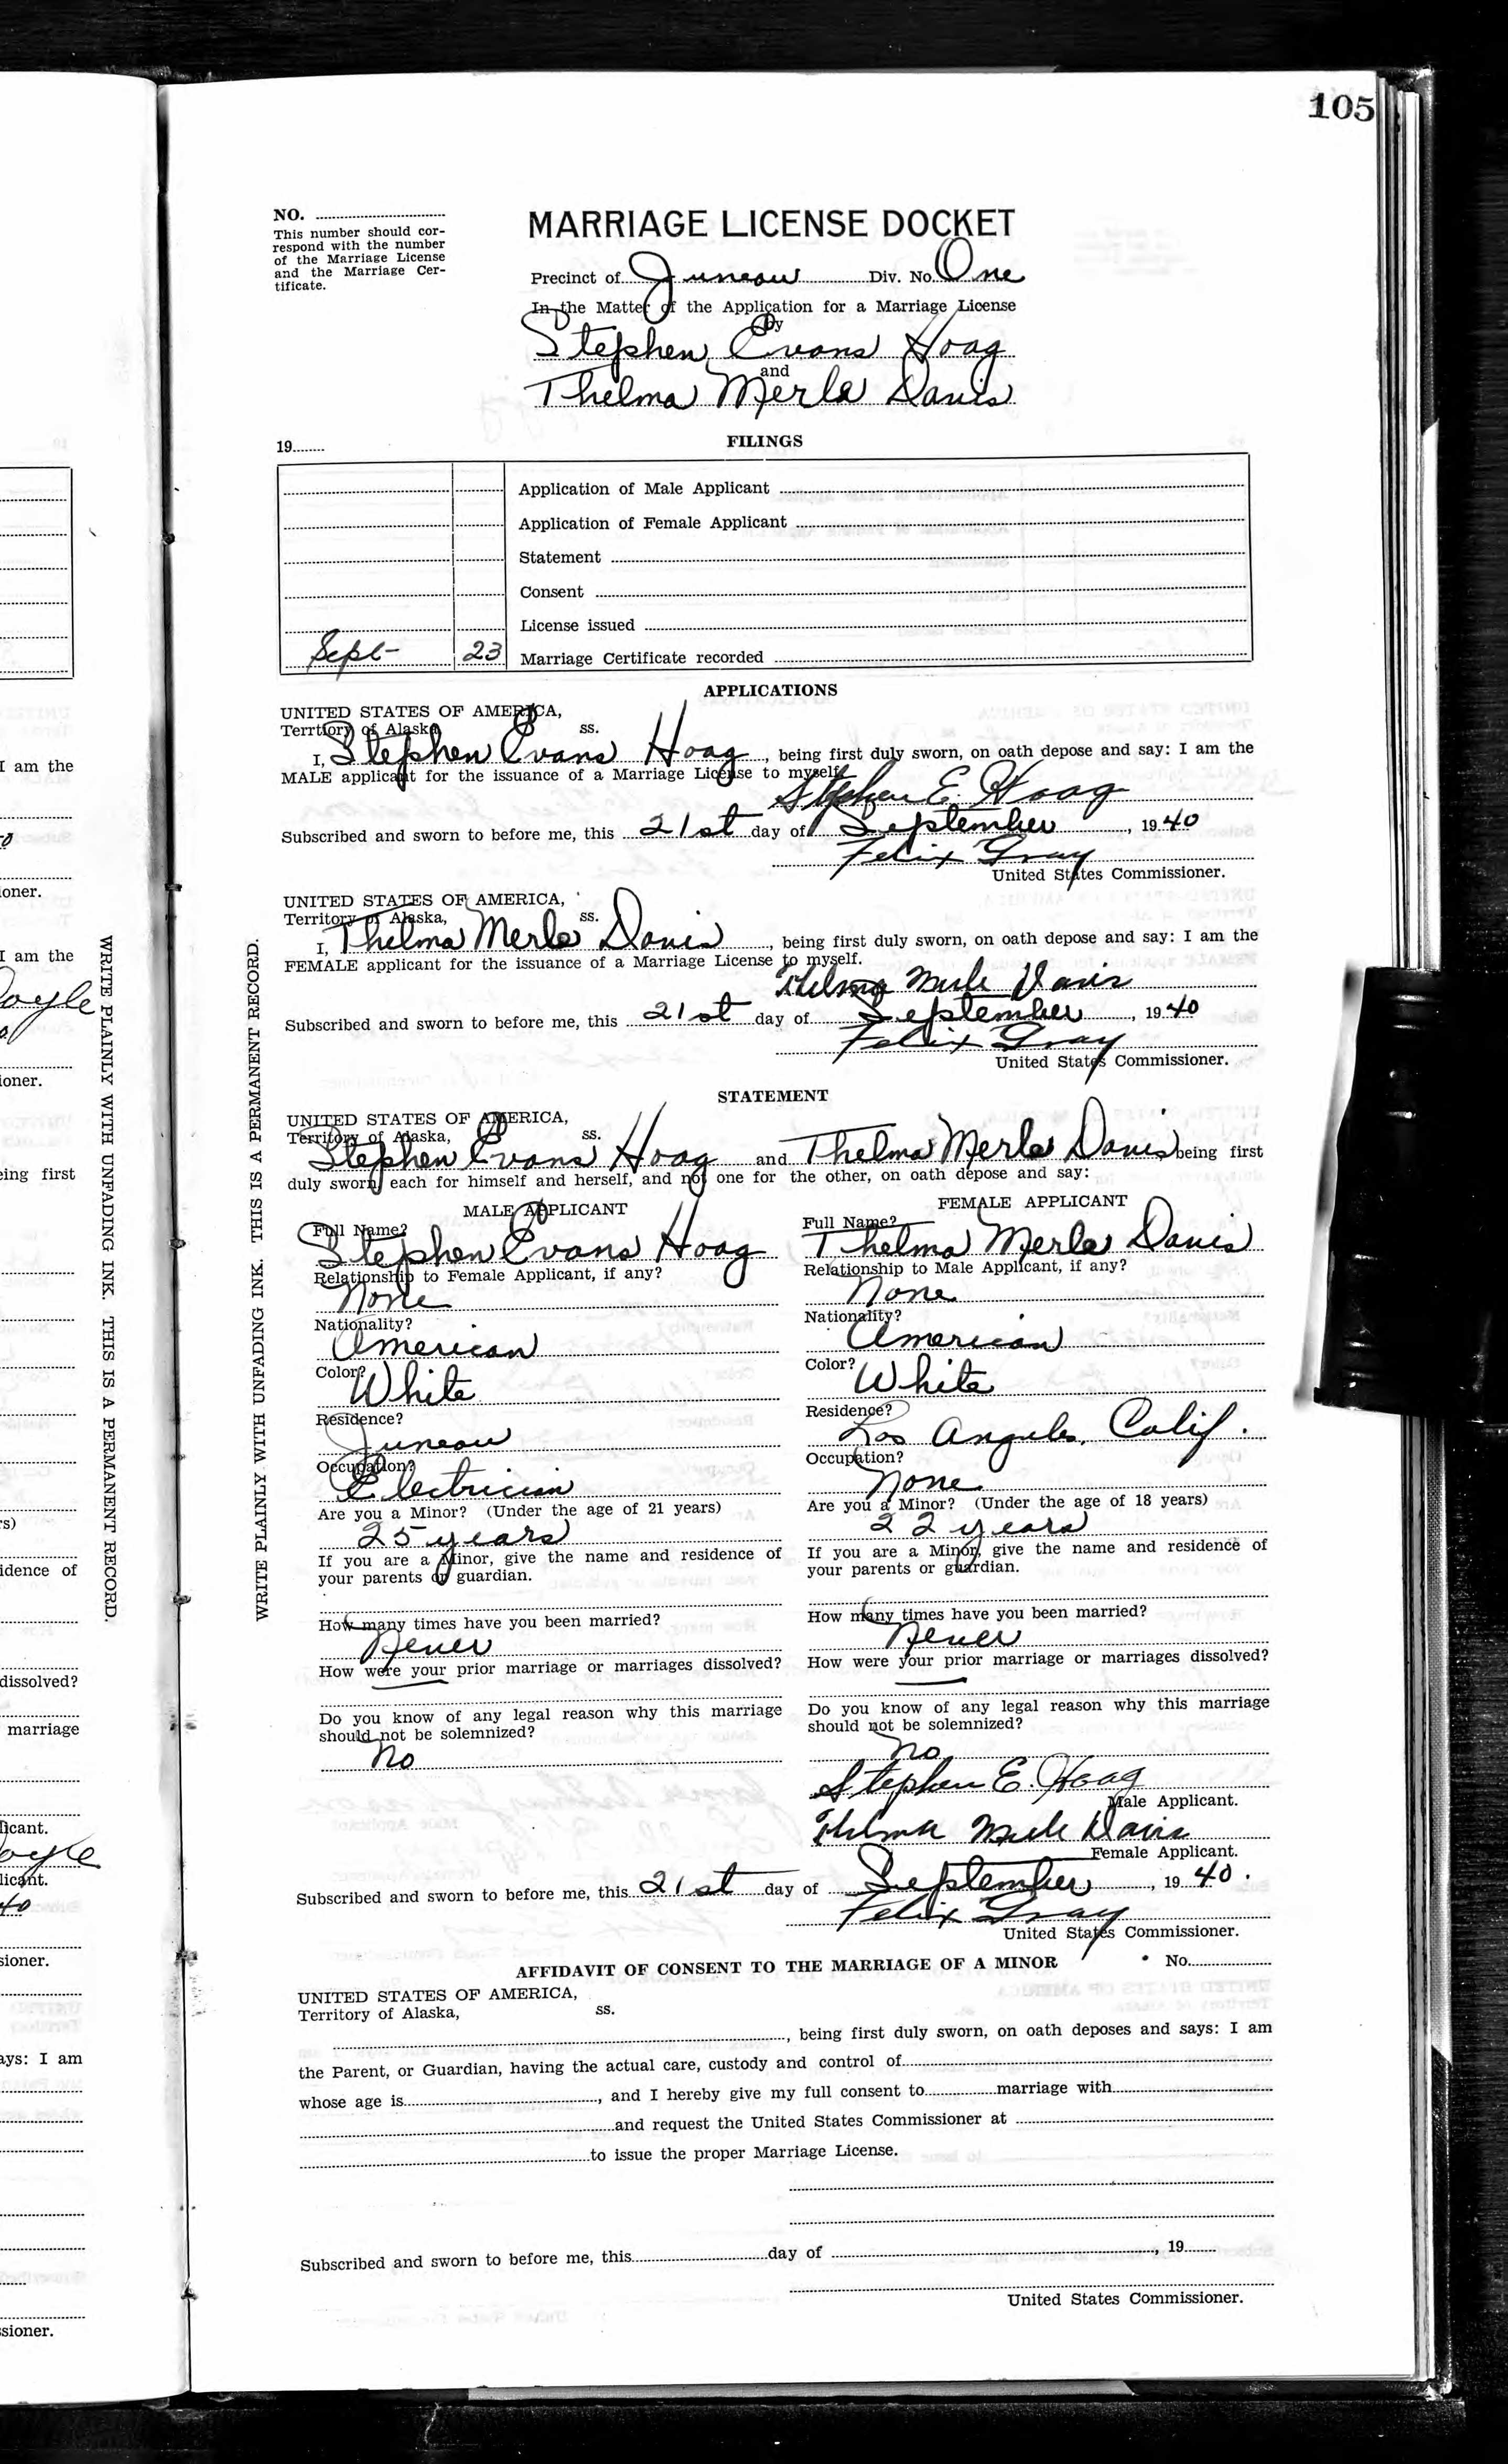 105
NO.
This number should cor-
respond with the number
of the Marriage License
and the Marriage Cer-
tificate.
MARRIAGE LICENSE DOCKET
Precinct of Juneau Div. No. One
In the Matter of the Application for a Marriage License
by
Stephen Evans Hoag
and
Thelma Merle Davis
19
FILINGS
Application of Male Applicant
Application of Female Applicant
Statement
Consent
License issued
Sept- 23 Marriage Certificate recorded
APPLICATIONS
UNITED STATES OF AMERICA,
Terrtiory of Alaska, ss.
I, Stephen Evans Hoag, being first duly sworn, on oath depose and say: I am the
MALE applicant for the issuance of a Marriage License to myself.
Stephen E. Hoag
Subscribed and sworn to before me, this 21st day of September, 1940
Felix Gray
United States Commissioner.
UNITED STATES OF AMERICA,
Territory of Alaska, ss.
I, Thelma Merle Davis, being first duly sworn, on oath depose and say: I am the
FEMALE applicant for the issuance of a Marriage License to myself.
Thelma Merle Davis
Subscribed and sworn to before me, this 21st day of September, 1940
Felix Gray
United States Commissioner.
STATEMENT
UNITED STATES OF AMERICA,
Territory of Alaska, ss.
Stephen Evans Hoag and Thelma Merle Davis being first
duly sworn, each for himself and herself, and not one for the other, on oath depose and say:
MALE APPLICANT
Full Name?
Stephen Evans Hoag
Relationship to Female Applicant, if any?
None
Nationality?
American
Color?
White
Residence?
Juneau
Occupation?
Electrician
Are you a Minor? (Under the age of 21 years)
25 years
If you are a Minor, give the name and residence of
your parents or guardian.
How many times have you been married?
Never
How were your prior marriage or marriages dissolved?
Do you know of any legal reason why this marriage
should not be solemnized?
No
FEMALE APPLICANT
Full Name?
Thelma Merle Davis
Relationship to Male Applicant, if any?
None
Nationality?
American
Color?
White
Residence?
Los Angeles, Calif.
Occupation?
None
Are you a Minor? (Under the age of 18 years)
22 years
If you are a Minor, give the name and residence of
your parents or guardian.
How many times have you been married?
Never
How were your prior marriage or marriages dissolved?
Do you know of any legal reason why this marriage
should not be solemnized?
No
Stephen E. Hoag
Male Applicant.
Thelma Merle Davis
Female Applicant.
Subscribed and sworn to before me, this 21st day of September, 1940.
Felix Gray
United States Commissioner.
AFFIDAVIT OF CONSENT TO THE MARRIAGE OF A MINOR No.
UNITED STATES OF AMERICA,
Territory of Alaska, ss.
, being first duly sworn, on oath deposes and says: I am
the Parent, or Guardian, having the actual care, custody and control of
whose age is, and I hereby give my full consent to marriage with
and request the United States Commissioner at
to issue the proper Marriage License.
Subscribed and sworn to before me, this day of, 19
United States Commissioner.
WRITE PLAINLY WITH UNFADING INK. THIS IS A PERMANENT RECORD.
WRITE PLAINLY WITH UNFADING INK. THIS IS A PERMANENT RECORD.
I am the
oner.
I am the
oyle
ioner.
eing first
s)
idence of
dissolved?
marriage
licant.
oyle
licant.
40
sioner.
ays: I am
ssioner.